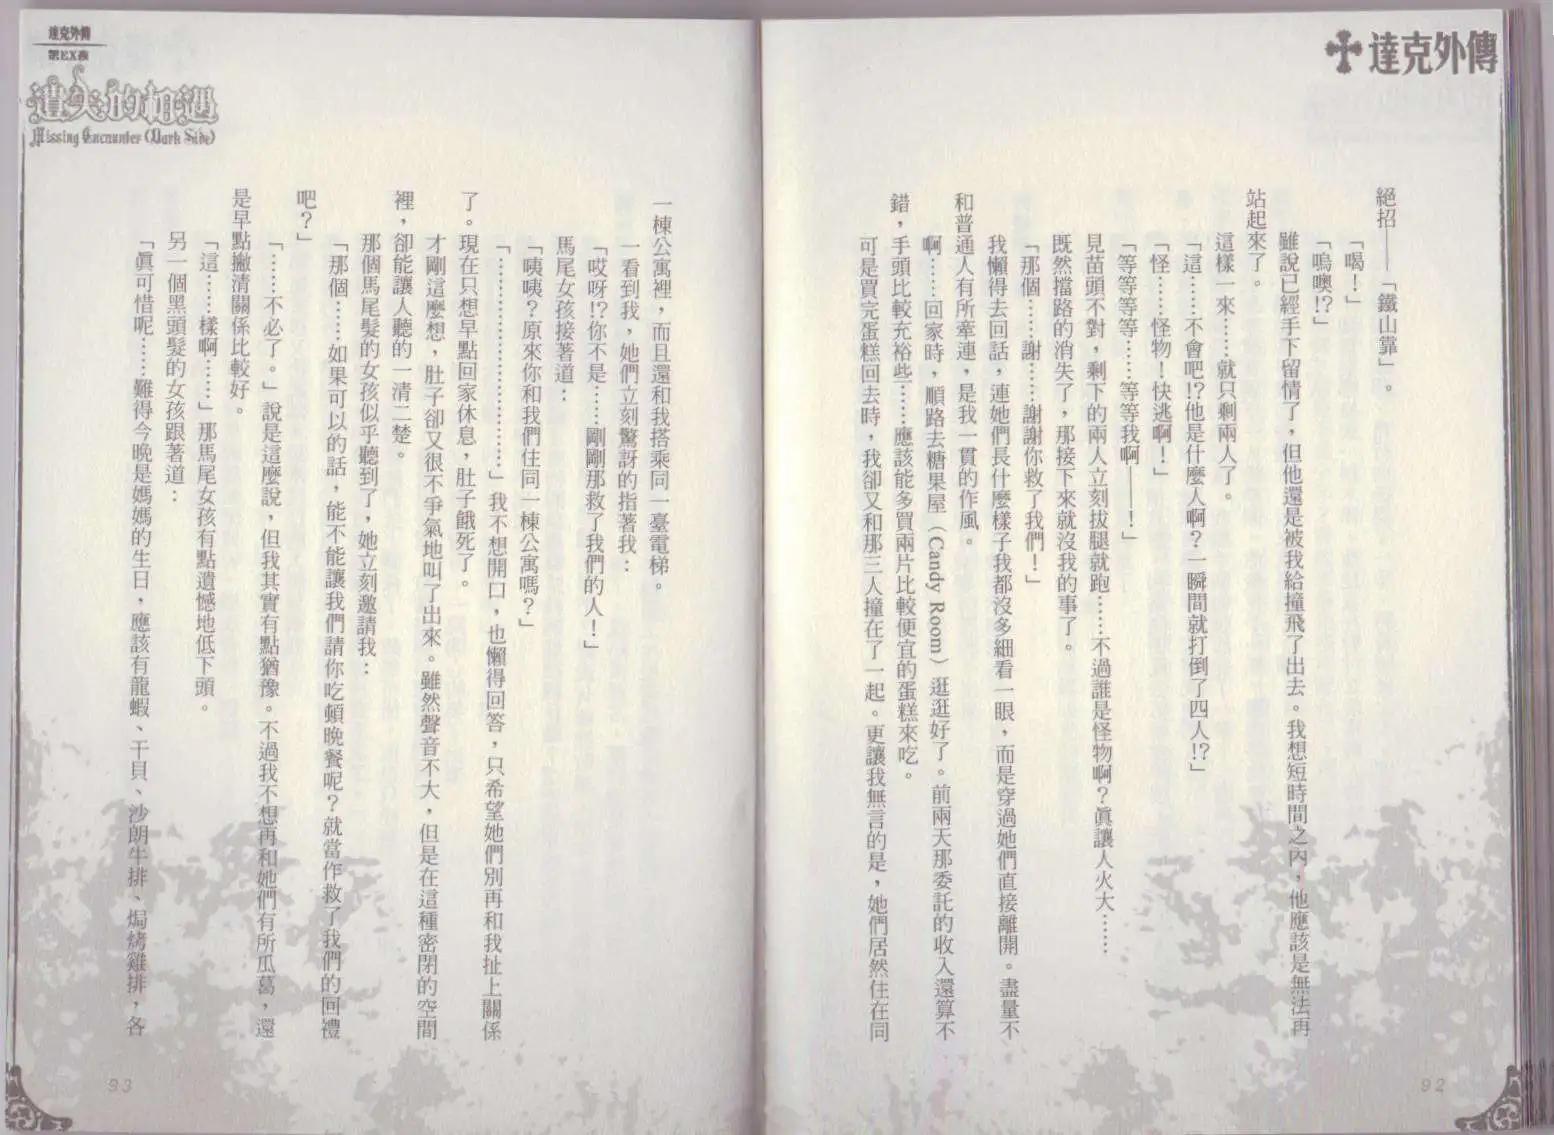 達克外傳
絕招——「鐵山靠」。
「喝！」
「嗚噢!?」
雖說已經手下留情了，但他還是被我給撞飛了出去。我想短時間之內，他應該是無法再
站起來了。
這樣一來……就只剩兩人了。
「這……不會吧!?他是什麼人啊？一瞬間就打倒了四人!?」
「怪……怪物！快逃啊！」
「等等等等……等等我啊——！」
見苗頭不對，剩下的兩人立刻拔腿就跑……不過誰是怪物啊？眞讓人火大……
既然擋路的消失了，那接下來就沒我的事了。
「那個……謝……謝謝你救了我們！」
我懶得去回話，連她們長什麼樣子我都沒多細看一眼，而是穿過她們直接離開。盡量不
和普通人有所牽連，是我一貫的作風。
啊……回家時，順路去糖果屋（Candy Room）逛逛好了。前兩天那委託的收入還算不
錯，手頭比較充裕些……應該能多買兩片比較便宜的蛋糕來吃。
可是買完蛋糕回去時，我卻又和那三人撞在了一起。更讓我無言的是，她們居然住在同
92
達克外傳
第EX章
遺失的相遇
Missing Encounter (Dark Side)
一棟公寓裡，而且還和我搭乘同一臺電梯。
一看到我，她們立刻驚訝的指著我：
「哎呀!?你不是……剛剛那救了我們的人！」
馬尾女孩接著道：
「咦咦？原來你和我們住同一棟公寓嗎？」
「……………………」我不想開口，也懶得回答，只希望她們別再和我扯上關係
了。現在只想早點回家休息，肚子餓死了。
才剛這麼想，肚子卻又很不爭氣地叫了出來。雖然聲音不大，但是在這種密閉的空間
裡，卻能讓人聽的一清二楚。
那個馬尾髮的女孩似乎聽到了，她立刻邀請我：
「那個……如果可以的話，能不能讓我們請你吃頓晚餐呢？就當作救了我們的回禮
吧？」
「……不必了。」說是這麼說，但我其實有點猶豫。不過我不想再和她們有所瓜葛，還
是早點撇清關係比較好。
「這……樣啊……」那馬尾女孩有點遺憾地低下頭。
另一個黑頭髮的女孩跟著道：
「眞可惜呢……難得今晚是媽媽的生日，應該有龍蝦、干貝、沙朗牛排、焗烤雞排，各
93